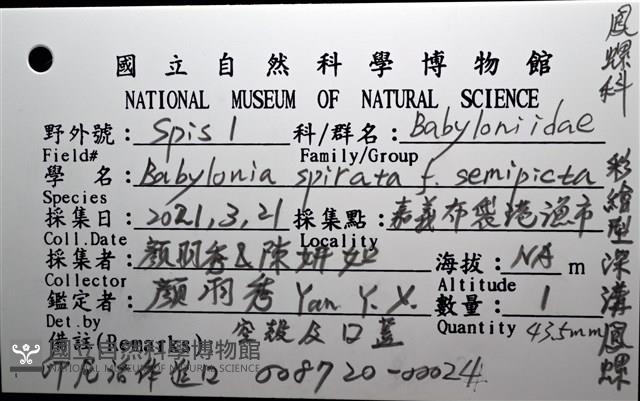 國立自然科學博物館
NATIONAL MUSEUM OF NATURAL SCIENCE
野外號：Spis 1 科/群名：Babyloniidae
Field# Family/Group
學 名：Babylonia spirata f. semipicta
Species
採集日：2021,3,21 採集點：嘉義布袋港漁市
Coll.Date Locality
採集者：顏羽秀&陳妍如 海拔：NA m
Collector Altitude
鑑定者：顏羽秀 Yan Y. X. 數量：1
Det.by Quantity 43.5mm
備註(Remarks) 空殼及口蓋
進口 008720-00024
鳳螺科
彩繪型深溝鳳螺
國立自然科學博物館
NATIONAL MUSEUM OF NATURAL SCIENCE